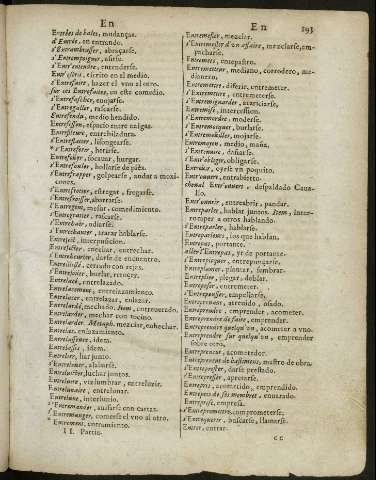 En
En
193
Entrelas de balas, mudanças.
d'Entrée, en entrando.
s'Entrembrasser, abraçarse.
s'Entrempoigner, asirse.
s'Entr'entendre, entenderse.
Entr'escrit, escrito en el medio.
s'Entrefaire, hazer el vno al otro.
sur ces Entrefaites, en este comedio.
s'Entrefascher, enojarse.
s'Entregratter, rascarse.
Entrefendu, medio hendido.
s'Entreflatter, lisongearse.
Entrefouir, socavar, hurgar.
s'Entrefouler, hollarse de piés.
s'Entrefrapper, golpearse, andar a moxicones.
s'Entrefrotter, estregar, fregarse.
Entregent, mesur, comedimiento.
s'Entregratter, rascarse.
s'Entrehair, odiarse.
s'Entrehanter, tratar hablarse.
Entrejection, interpuscion.
s'Entreheurter, darse de encuentro.
Entrelassé, cerrado con rejas.
Entrelacé, entrelazado.
Entrelacement, entrelazamiento.
Entrelacer, entrelazar, enlazar.
Entrelardé, mechado. Item, entreuerado.
Entrelarder, mechar con tocino.
Entrelarder. Metaph. mezclar, enhechar.
Entrelas, enlazamiento.
Entrelassement, idem.
Entrelasser, idem.
Entrelier, liar junto.
s'Entrelouer, alabarse.
Entreluicter, luchar juntos.
Entreluire, vislumbrar, entreluzir.
Entrelunaire, entrelonar.
Entrelune, interlunio.
s'Entremander, auisarse con cartas.
s'Entremanger, comerse el vno al otro.
Entremens, entramiento.
II. Partie.
Entremesler, mezclar.
s'Entremesler d'vn affaire, mezclarse, empacharse.
Entremets, entepastro.
Entremetteur, mediano, corredero, medionero.
Entremettre, diferir, entremeter.
s'Entremettre, entremeterse.
s'Entremignarder, acariciarse.
Entremise, intercession.
s'Entremordre, moderse.
s'Entremocquer, burlarse.
s'Entremouiller, mojarse.
Entremoyen, medio, maña.
s'Entrenuire, dañarse.
s'Entr'obliger, obligarse.
Entr'ouuert, entrabierto.
cheual Entr'ouuert, despaldado Cauallo.
Entr'ouurir, entreabrir, pandar.
Entreparler, hablar juntos. Item, interrompar a otros hablando.
s'Entreparler, hablarse.
Entreparleurs, los que hablan.
Entrepas, portante.
aller l'Entrepas, yr de portante.
s'Entrepicquer, entrepungarse.
Entreplanter, plantar, sembrar.
Entreplier, plegar, doblar.
Entreposer, entremeter.
s'Entrepousser, empellarse.
Entreprenant, atreuido, osado.
Entreprendre, emprender, acometer.
Entreprendre de faire, emprender.
Entreprendre quelqu'vn, acometer a vno.
Entreprendre sur quelqu'vn, emprender sobre otro.
Entrepreneur, acometedor.
Entrepreneur de bastimens, mastro de obra.
s'Entreprester, darse prestado.
s'Entrepresser, apretarse.
Entrepris, acometido, emprendido.
Entrepris de ses membres, enuarado.
Entreprise, empresa.
s'Entreprometre, comprometerse.
s'Entrequerir, buscarse, llamarse.
Entrer, entrar.
cc